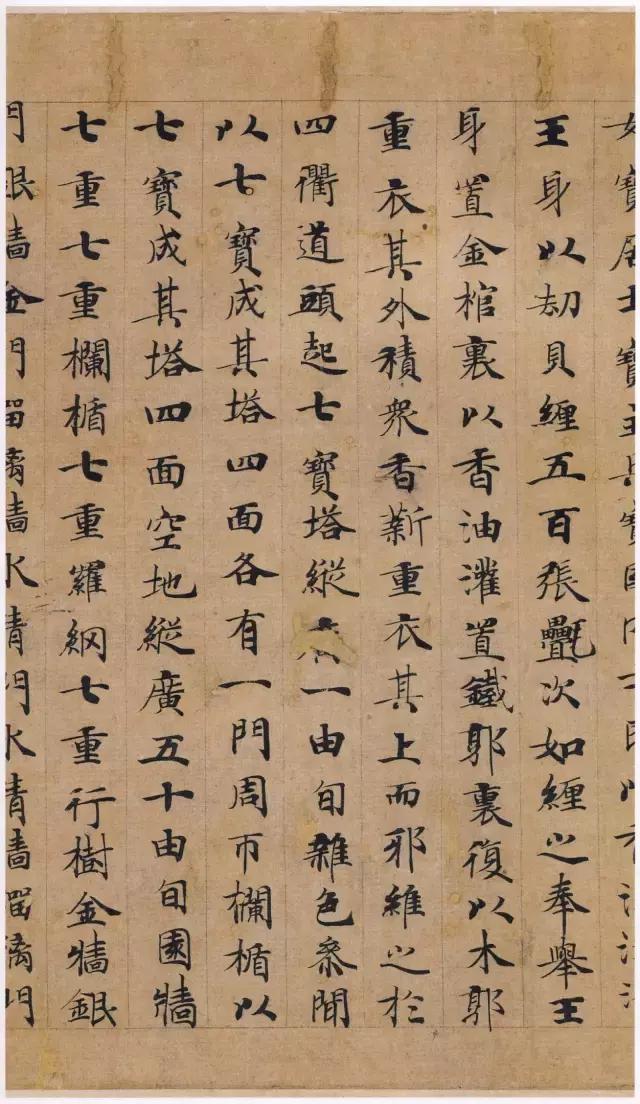 女寶居士寶主兵寶國
王身以劫貝纏五百張氎次如纏之奉舉王
身置金棺裏以香油灌置鐵郭裏復以木郭
重衣其外積衆香薪重衣其上而邪維之於
四衢道頭起七寶塔縱一由旬雜色參間
以七寶成其塔四面各有一門周帀欄楯以
七寶成其塔四面空地縱廣五十由旬園牆
七重七重欄楯七重羅網七重行樹金牆銀
門銀牆金門牆水門水牆門